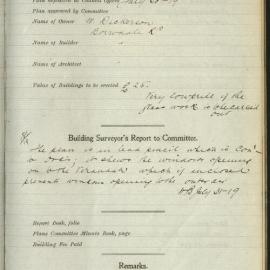 Plan deposited at Council Office July 20-19
Plan approved by Committee
Name of Owner W. Dickerson
Name of Builder
Name of Architect
Value of Buildings to be erected £ 25.
of the
work is to be carried
out
Building Surveyor's Report to Committee.
The plan is in lead pencil which is
it shews the windows opening
on to the Verandah which if enclosed
present windows opening to the outer air
July 21-19
Report Book, folio
Plans Committee Minute Book, page
Building Fee Paid
Remarks.